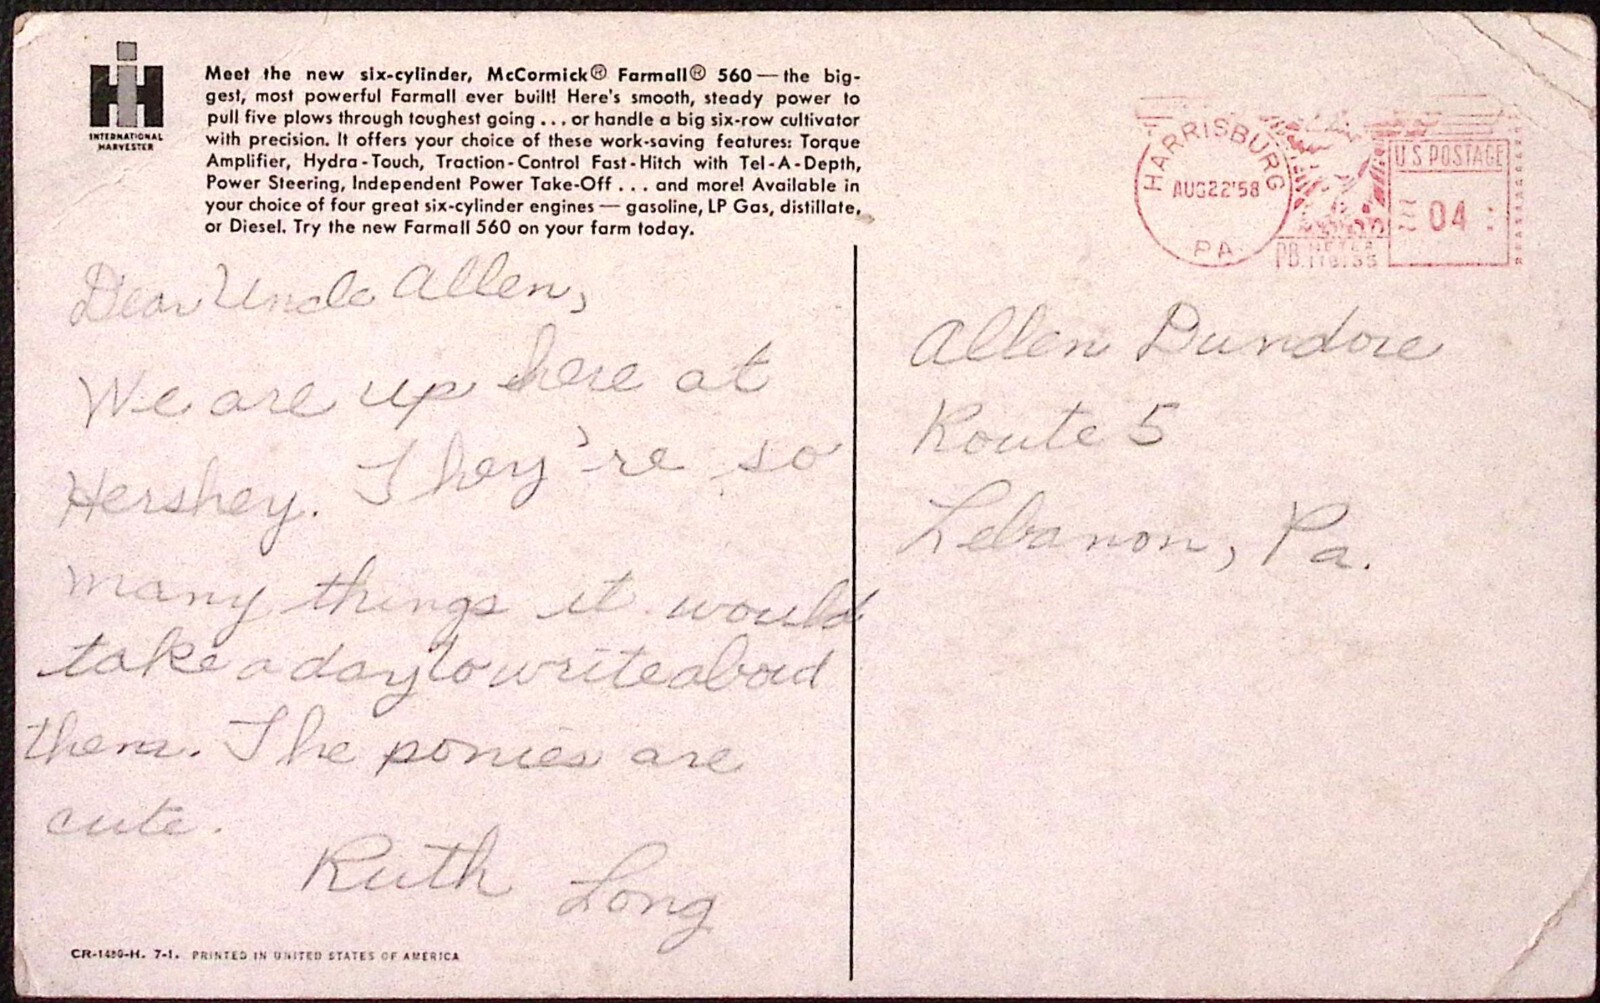 IH
INTERNATIONAL
HARVESTER
Meet the new six-cylinder, McCormick® Farmall® 560—the big-
gest, most powerful Farmall ever built! Here's smooth, steady power to
pull five plows through toughest going . . . or handle a big six-row cultivator
with precision. It offers your choice of these work-saving features: Torque
Amplifier, Hydra-Touch, Traction-Control Fast-Hitch with Tel-A-Depth,
Power Steering, Independent Power Take-Off . . . and more! Available in
your choice of four great six-cylinder engines — gasoline, LP Gas, distillate,
or Diesel. Try the new Farmall 560 on your farm today.
Dear Uncle Allen,
We are up here at
Hershey. They're so
many things it would
take a day to write about
them. The ponies are
cute.
Ruth Long
CR-1480-H. 7-1. PRINTED IN UNITED STATES OF AMERICA
HARRISBURG
AUG22'58
PA
U.S. POSTAGE
04
PB. METER
Allen Dundore
Route 5
Lebanon, Pa.